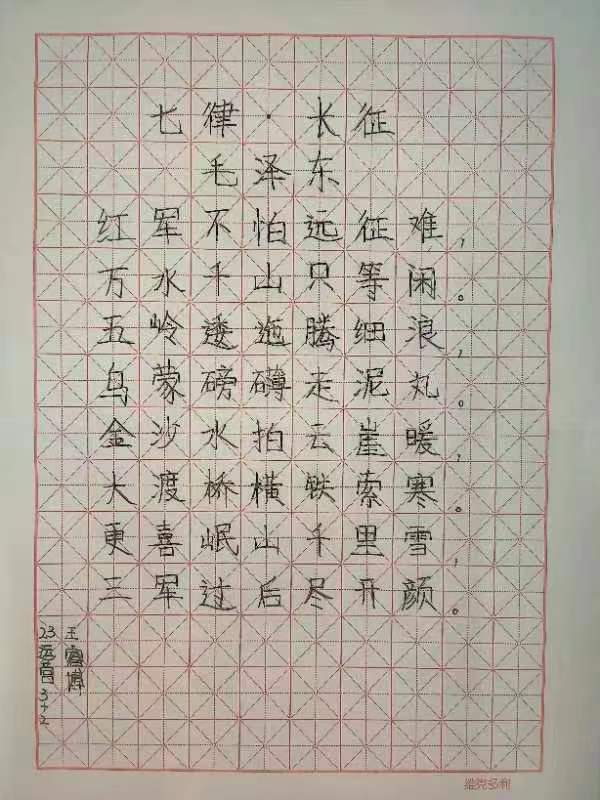 七律·长征
毛泽东
红军不怕远征难，
万水千山只等闲。
五岭逶迤腾细浪，
乌蒙磅礴走泥丸。
金沙水拍云崖暖，
大渡桥横铁索寒。
更喜岷山千里雪，
三军过后尽开颜。
23
3+2
维克多利